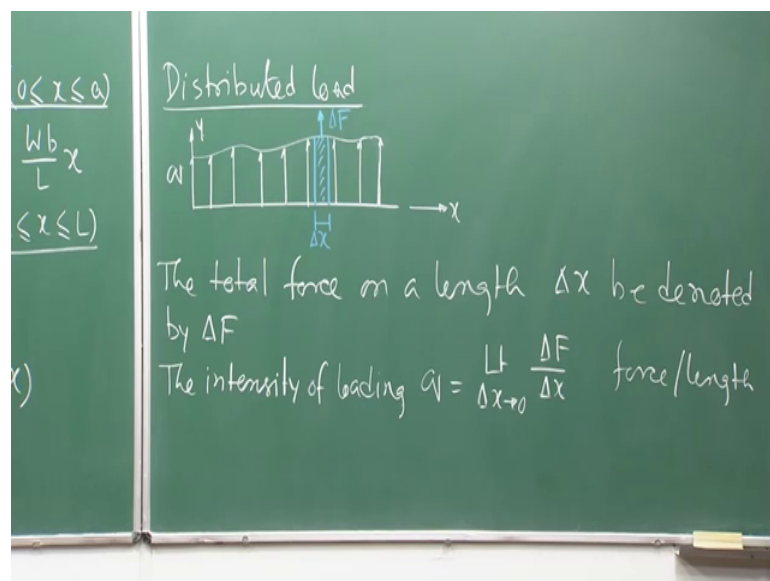 0 ≤ x ≤ a)
Wb
L
x
≤ x ≤ L)
x)
Distributed load
Y
ΔF
q
x
Δx
The total force on a length Δx be denoted
by ΔF
The intensity of loading q = Lt Δx→0 ΔF/Δx force/length